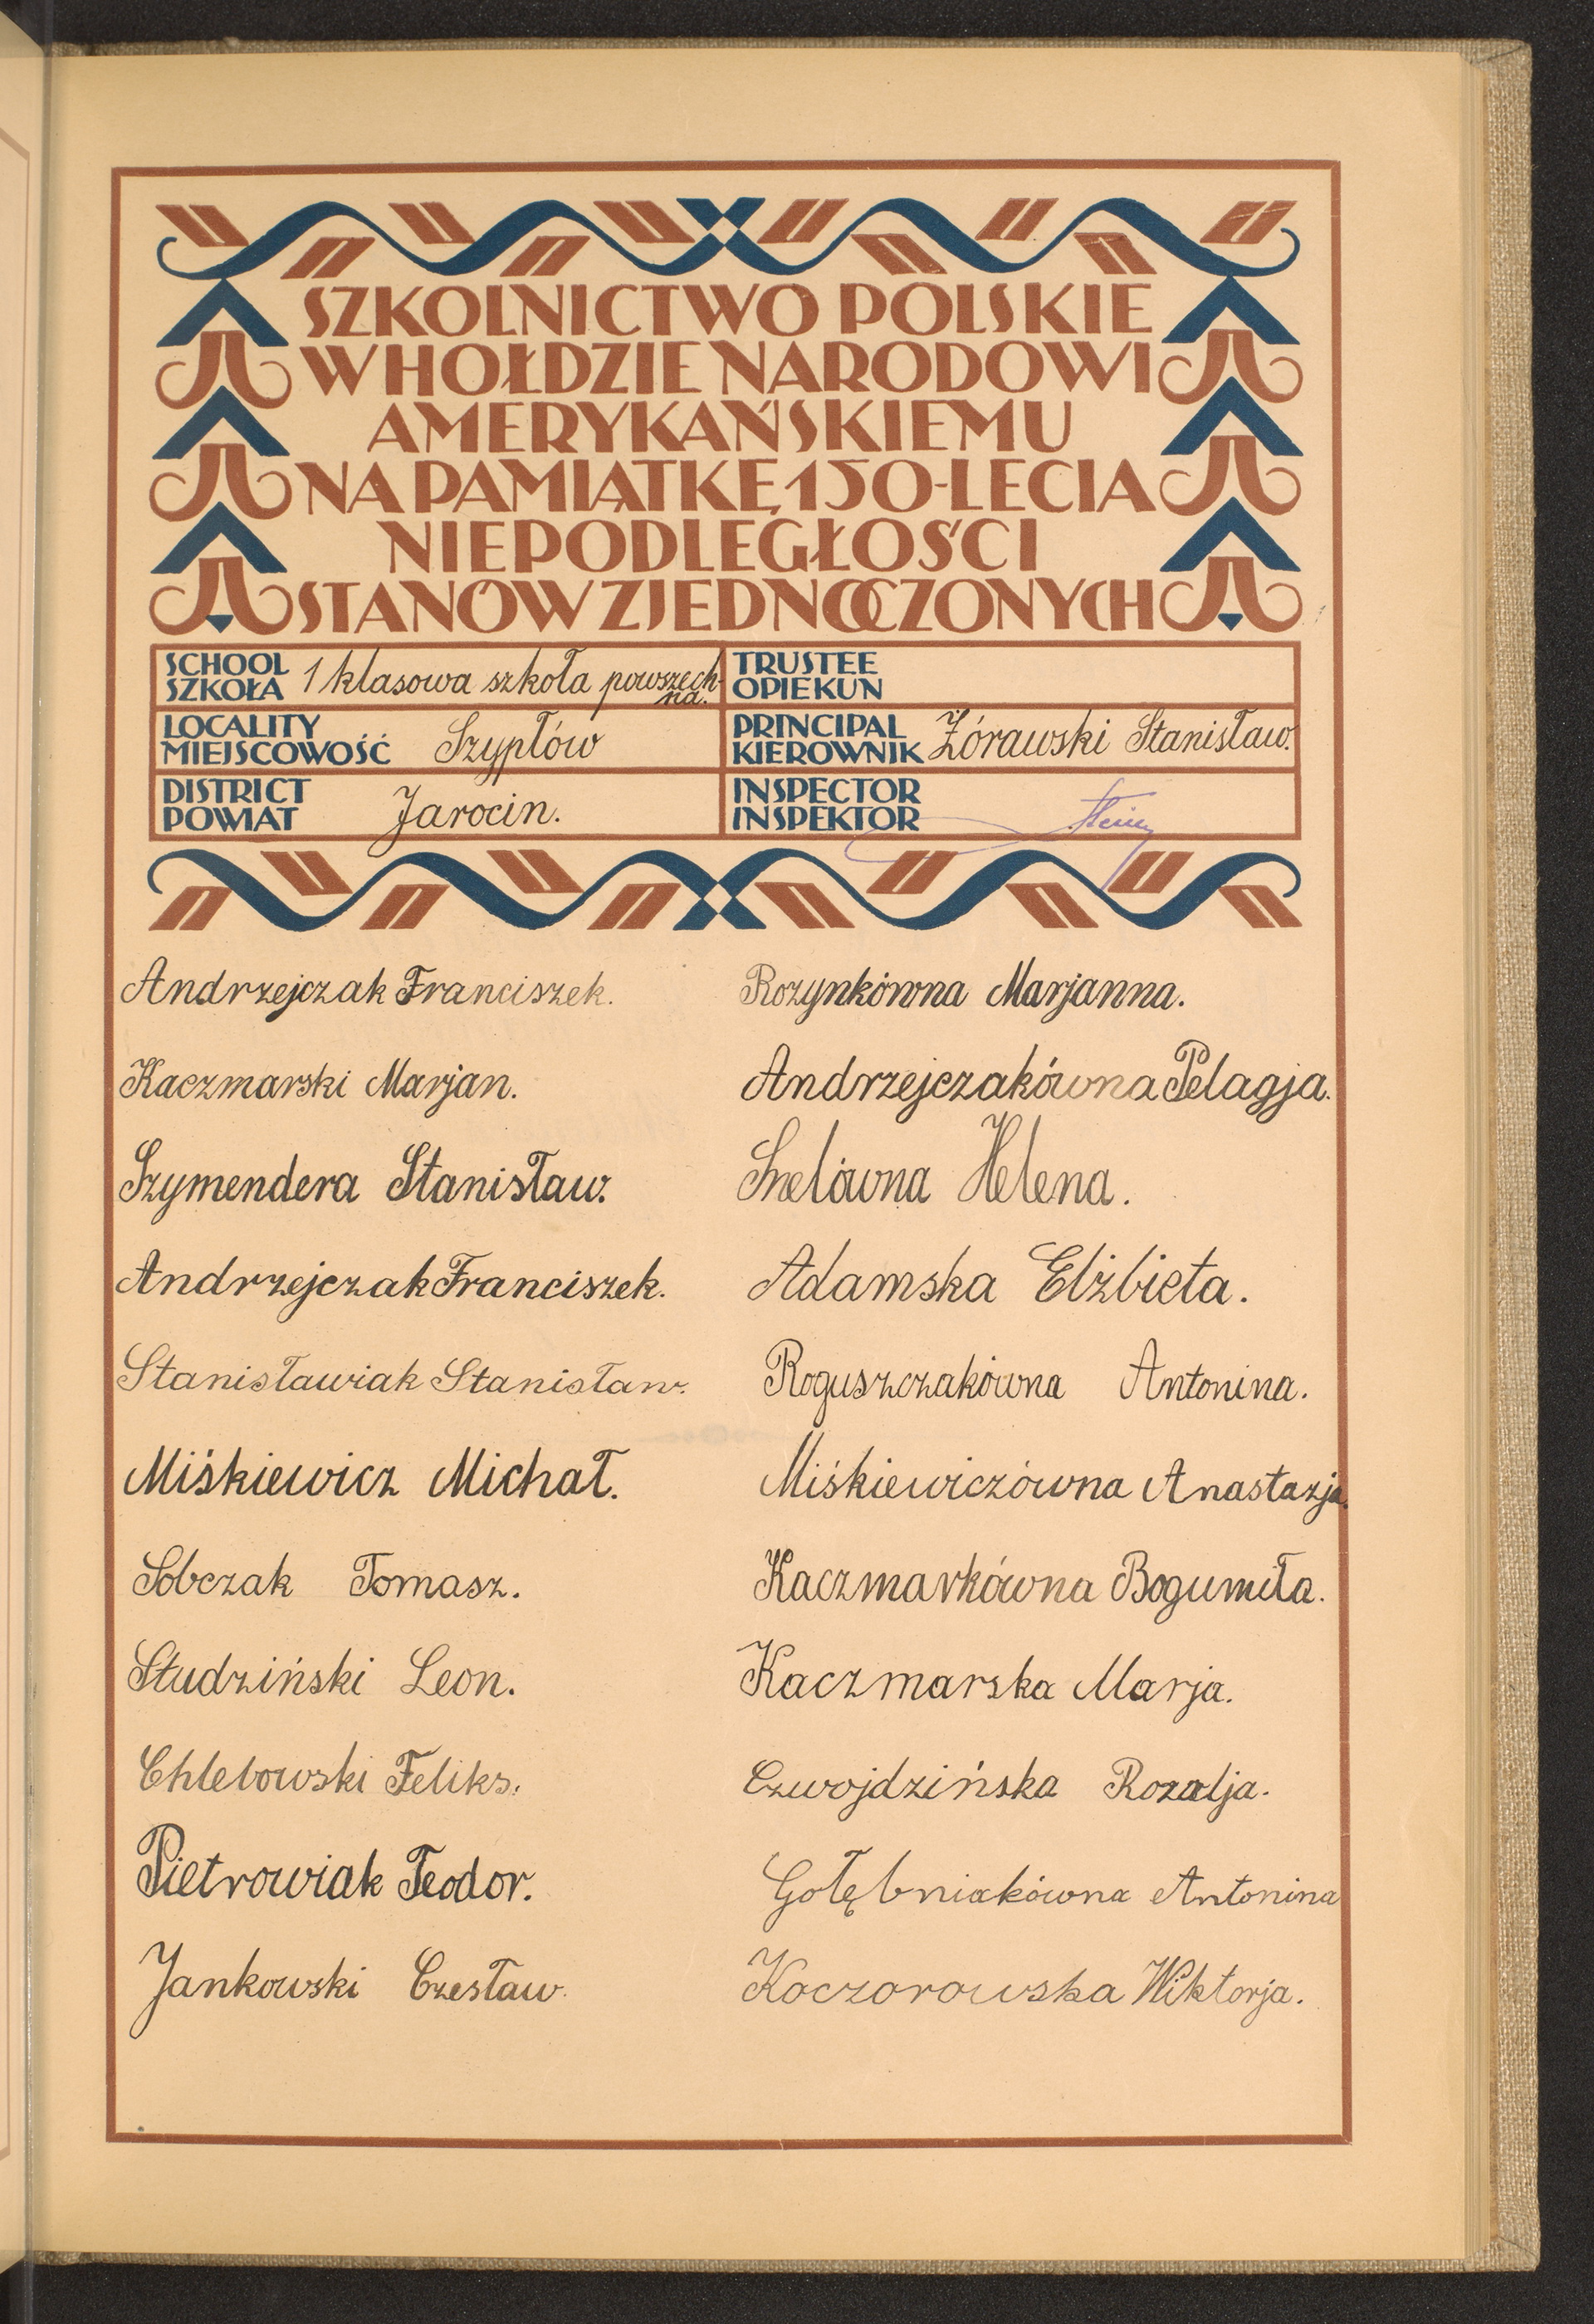 SZKOLNICTWO POLSKIE
W HOŁDZIE NARODOWI
AMERYKAŃSKIEMU
NA PAMIĄTKĘ 150-LECIA
NIEPODLEGŁOŚCI
STANÓW ZJEDNOCZONYCH
SCHOOL
SZKOŁA 1 klasowa szkoła powszech-
na.
TRUSTEE
OPIEKUN
LOCALITY
MIEJSCOWOŚĆ Szypłów
PRINCIPAL
KIEROWNIK Żórawski Stanisław.
DISTRICT
POWIAT Jarocin.
INSPECTOR
INSPEKTOR
Andrzejczak Franciszek.
Kaczmarski Marjan.
Szymendera Stanisław.
Andrzejczak Franciszek.
Stanisławiak Stanisław.
Miśkiewicz Michał.
Sobczak Tomasz.
Studziński Leon.
Chlebowski Feliks.
Pietrowiak Teodor.
Jankowski Czesław.
Rozynkówna Marjanna.
Andrzejczakówna Pelagja.
Smelówna Helena.
Adamska Elżbieta.
Roguszczakówna Antonina.
Miśkiewiczówna Anastazja.
Kaczmarkówna Bogumiła.
Kaczmarska Marja.
Czwojdzińska Rozalja.
Gołębniakówna Antonina
Kaczorowska Wiktorja.